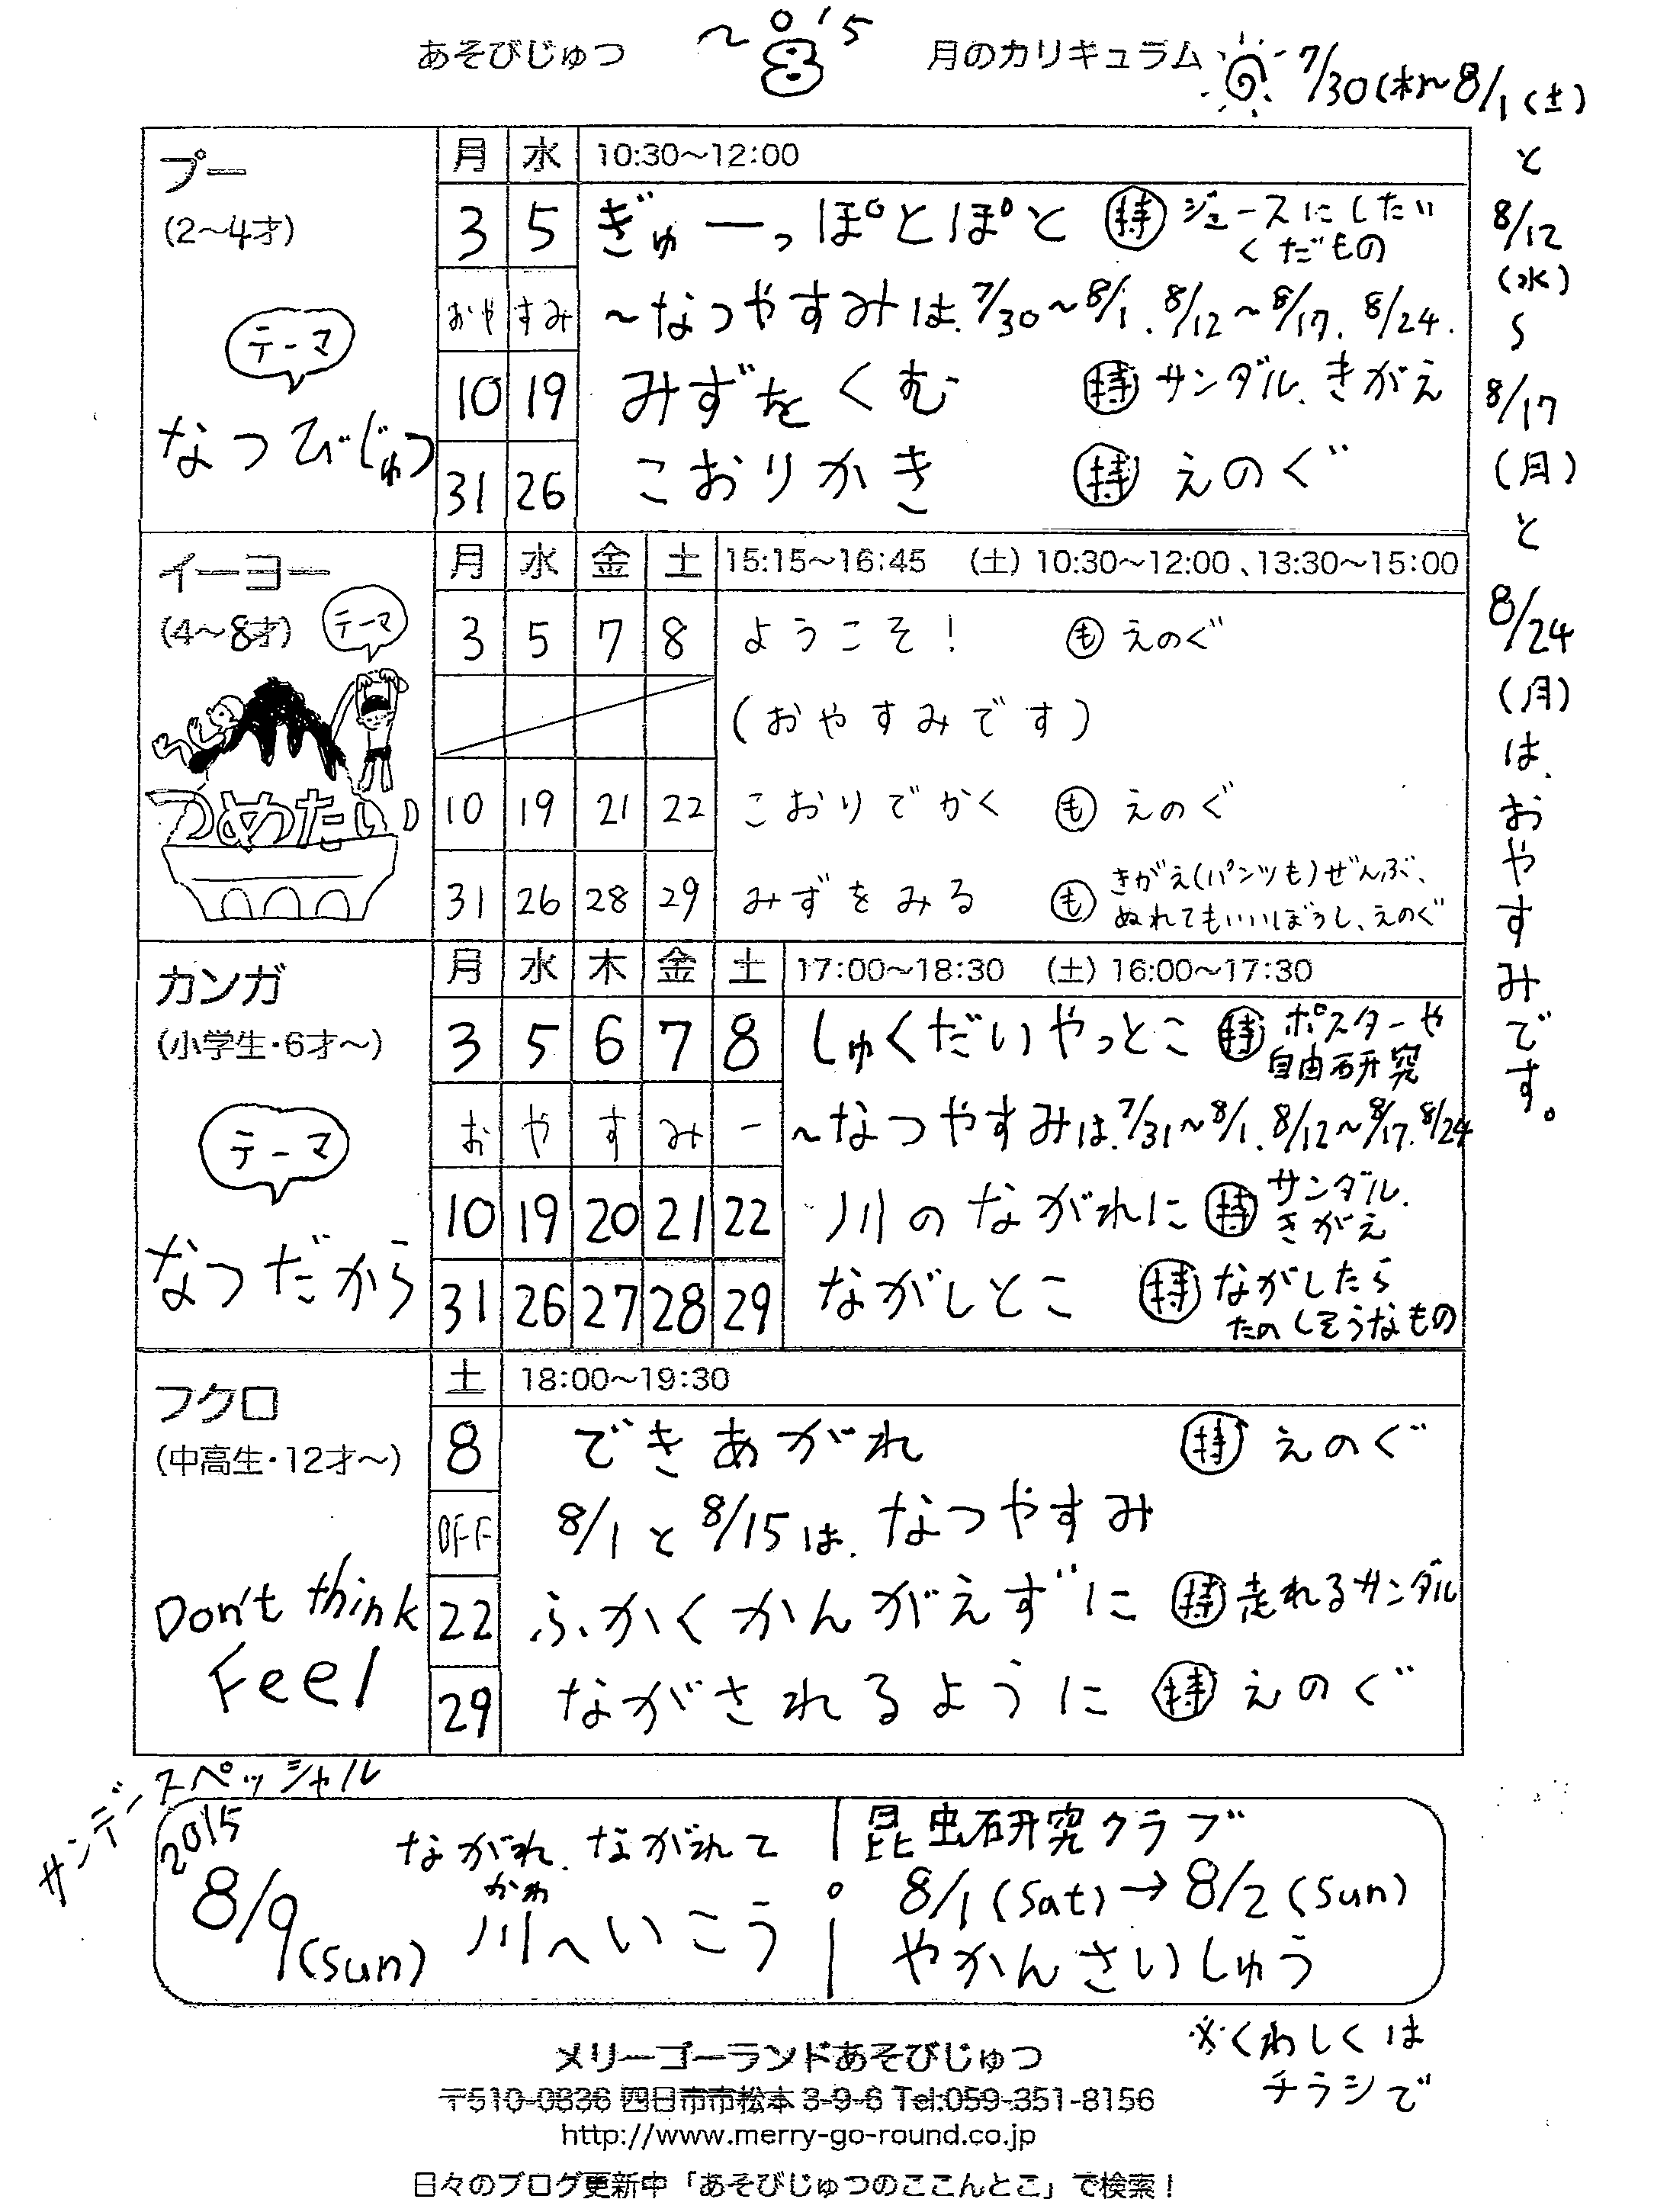 あそびじゅつ 2015 8 月のカリキュラム
7/30(木)~8/1(土)
と
8/12
(水)
~
8/17
(月)
と
8/24
(月)
は、おやすみです。
プー
(2〜4才)
テーマ
なつびじゅつ
月 水 10:30〜12:00
3 5 ぎゅーっぽとぽと 持 ジュースにしたい
くだもの
おや すみ ~なつやすみは、7/30~8/1、8/12~8/17、8/24.
10 19 みずをくむ 持 サンダル、きがえ
31 26 こおりかき 持 えのぐ
イーヨー
(4〜8才)
テーマ
つめたいい
月 水 金 土 15:15〜16:45 (土) 10:30〜12:00、13:30〜15:00
3 5 7 8 ようこそ! も えのぐ
(おやすみです)
10 19 21 22 こおりでかく も えのぐ
31 26 28 29 みずをみる も きがえ(パンツも)ぜんぶ、
ぬれてもいいぼうし、えのぐ
カンガ
(小学生・6才〜)
テーマ
なつだから
月 水 木 金 土 17:00〜18:30 (土) 16:00〜17:30
3 5 6 7 8 しゅくだいやっとこ 持 ポスターや
自由研究
お や す み ー ~なつやすみは、7/31~8/1、8/12~8/17、8/24
10 19 20 21 22 川のながれに 持 サンダル、
きがえ
31 26 27 28 29 ながしとこ 持 ながしたら
たのしそうなもの
フクロ
(中高生・12才〜)
Don't think
Feel
土 18:00〜19:30
8 できあがれ 持 えのぐ
OFF 8/1と8/15は、なつやすみ
22 ふかくかんがえずに 持 走れるサンダル
29 ながされるように 持 えのぐ
サンデースペッシャル
2015
8/9(sun)
ながれ、ながれて
かわ
川へいこう
昆虫研究クラブ
8/1(Sat)→8/2(Sun)
やかんさいしゅう
※くわしくは
チラシで
メリーゴーランドあそびじゅつ
〒510-0836 四日市市松本 3-9-6 Tel:059-351-8156
http://www.merry-go-round.co.jp
日々のブログ更新中「あそびじゅつのここんとこ」で検索!